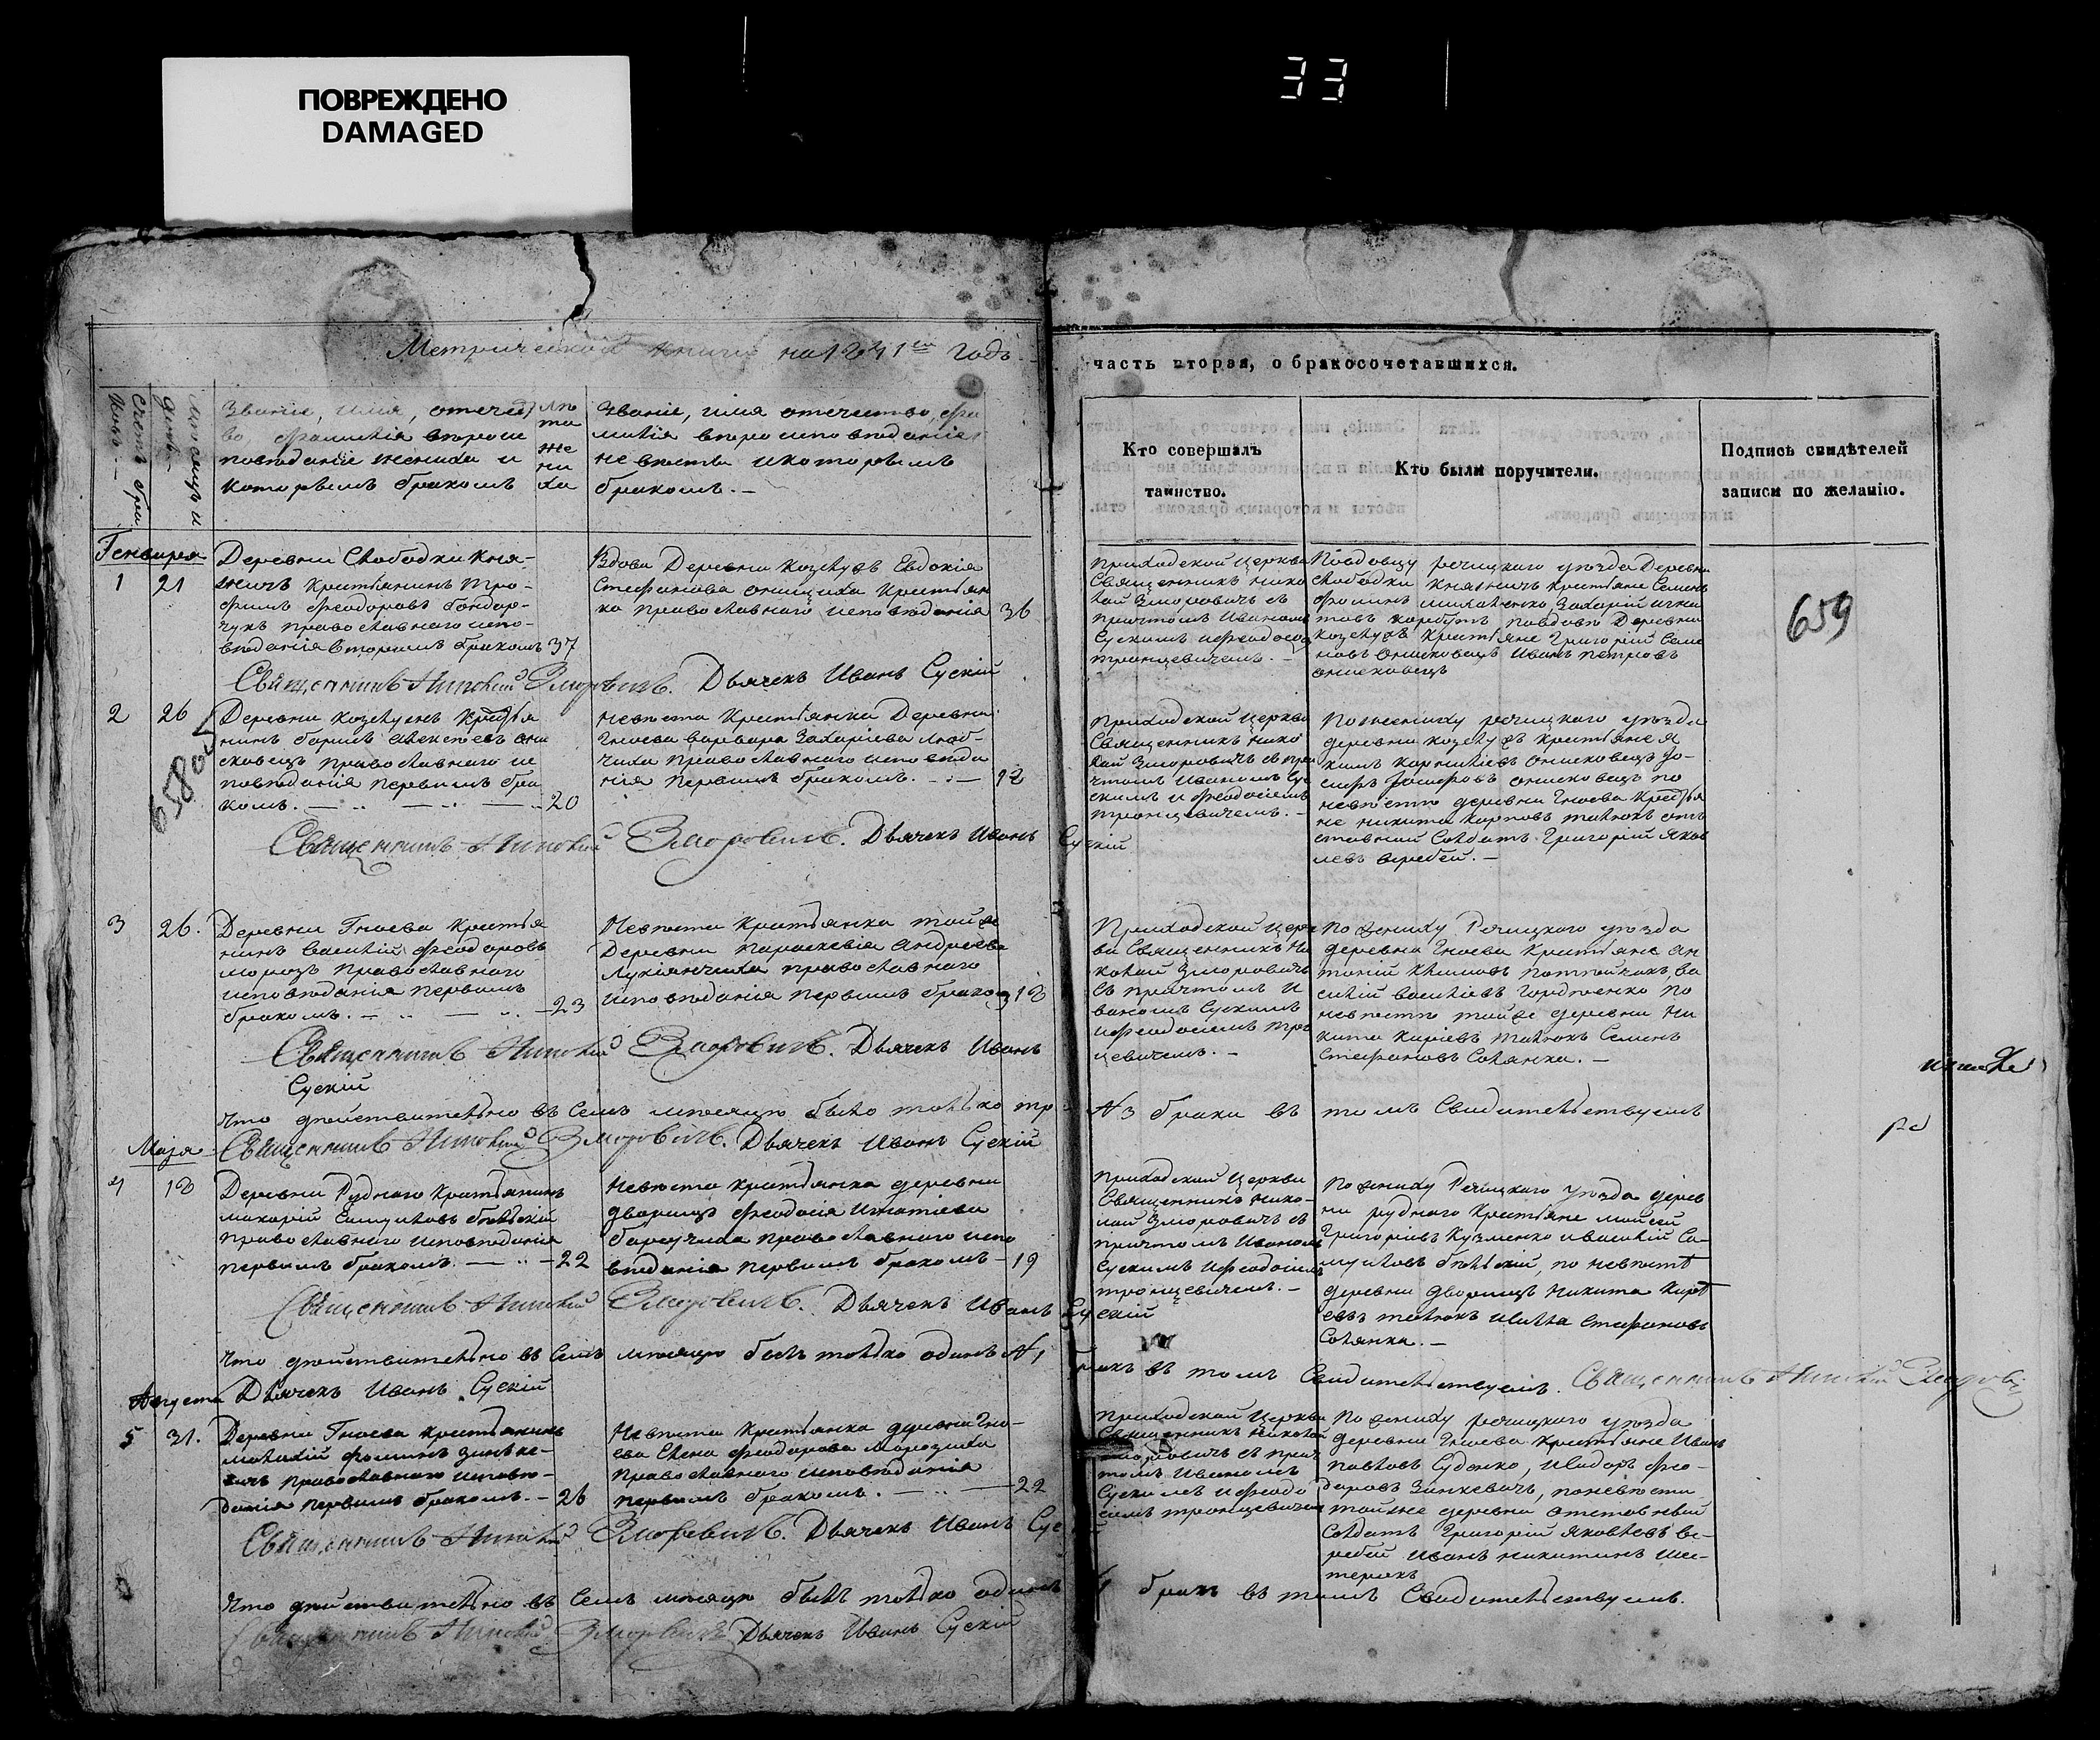 ПОВРЕЖДЕНО
DAMAGED
33
Метрической книги на 1841й годъ
часть вторая, о бракосочетавшихся.
счетъ бра
ковъ
месяцъ и
день
Званіе, имя, отечест
во, фамилія и вероис
поведаніе жениха и
которымъ бракомъ
ле
та
же
ни
ха
Званіе, имя отечество, фа
милія вероисповеданіе
невесты и которымъ
бракомъ. —
Кто совершалъ
таинство.
Кто были поручители.
Подпись свидѣтелей
записи по желанію.
Генваря
1 21
Деревни Слободки Кня-
жичъ Крестьянинъ Тро-
фимъ Феодоровъ Бондар-
чукъ православнаго испо-
веданія вторымъ бракомъ 37
Вдова Деревни Козлуовъ Евдокія
Стефанова онищиха Крестьян
ка православнаго исповеданія 36
приходской церкви
Священникъ Нико
лай Зморовичъ съ
причтомъ Иваномъ
Сускимъ и Феодосо
тронцевичемъ. —
По вдовцу речицкаго уезда Деревни
слободки Княжичъ крестьяне Семенъ
Фоминъ михаленко, Захарій игна
товъ корбутъ по вдове Деревни
Козлуовъ крестьяне Григорій Семе
новъ Онисковецъ Иванъ петровъ
онисковецъ
659
Священникъ Николай Зморовичъ. Дьячекъ Иванъ Сускій
2 26
658об
Деревни Козлуенъ Крестья
нинъ борисъ Алексеевъ они
сковецъ православнаго ис
поведанія первымъ бра
комъ. — 20
невеста Крестьянка Деревни
Гноева варвара Захаріева люб-
чиха православнаго исповеда
нія первымъ бракомъ. — 18
приходской церкви
Священникъ Нико
лай Зморовичъ съ при
чтомъ Иваномъ Су
скимъ и Феодосіемъ
тронцевичемъ. —
По жениху речицкаго уезда
деревни Козлуовъ крестьяне я
кимъ Корниліевъ Онисковецъ Іо-
сифъ Іосифовъ онисковецъ по
невесте деревни Гноева Крестья
не никита карповъ талюкъ от
ставный Солдатъ Григорій яков
левъ веребей. —
Священникъ Николай Зморовичъ. Дьячекъ Иванъ Сускій
3 26.
Деревни Гноева Крестья
нинъ василій Феодоровъ
морозъ православнаго
исповеданія первымъ
бракомъ. — 23
Невеста Крестьянка той же
Деревни параскевія Андреева
Лукіянчиха православнаго
исповеданія первымъ бракомъ 18
Приходской церк
ви Священникъ Ни
колай Зморовичъ
съ причтомъ И
ваномъ Сускимъ
и Феодосіемъ трон
цевичемъ. —
По жениху Речицкаго уезда
деревни Гноева Крестьяне ан
тоній Климовъ ва
силій василіевъ Гордиенко по
невесте той же деревни ни
кита карпевъ талюкъ Семенъ
Стефановъ Солянка. —
Священникъ Николай Зморовичъ. Дьячекъ Иванъ
Сускій
Что действительно въ семъ месяце было только три № 3 брака въ томъ Свидетельствуемъ
Священникъ Николай Зморовичъ. Дьячекъ Иванъ Сускій
Маія
4 18
Деревни Руднаго Крестьянинъ
макарій Самуиловъ бельскій
православнаго исповеданія
первымъ бракомъ. — 22
невеста крестьянка деревни
дворищъ Феодосія Игнатіева
православнаго испо
веданія первымъ бракомъ — 19
приходской церкви
Священникъ Нико-
лай Зморовичъ съ
причтомъ Иваномъ
Сускимъ и Феодосіемъ
тронцевичемъ. —
По жениху Речицкаго уезда дерев
ни руднаго Крестьяне мойсей
Григоріевъ Кузменко и василій Са-
муиловъ бельскій, по невесте
деревни дворищъ никита Карп
евъ талюкъ Стефановъ
Солянка. —
Священникъ Николай Зморовичъ. Дьячекъ Иванъ Сускій
Что действительно въ семъ месяце былъ только одинъ № 1 бракъ въ томъ Свидетельствуемъ. Священникъ Николай Зморовичъ
Дьячекъ Иванъ Сускій
Августа
5 31.
Деревни Гноева крестьянинъ
Фоминъ зинке-
вичъ православнаго испове-
данія первымъ бракомъ. — 26
Невеста Крестьянка деревни Гно-
ева Елена Феодорова морозиха
православнаго исповеданія
первымъ бракомъ. — 22
приходской церкви
Священникъ Николай
Зморовичъ съ прич
томъ Иваномъ
Сускимъ и Феодо
сіемъ тронцевичем
По жениху речицкаго уезда
деревни Гноева крестьяне Иванъ
павловъ Суденко, Исидоръ Фео-
доровъ Зинкевичъ, по невесте
той же деревни отставный
Солдатъ Григорій Яковлевъ ве-
ребей Иванъ никитинъ
Священникъ Николай Зморовичъ. Дьячекъ Иванъ Сускій
Что действительно въ семъ месяце былъ только одинъ 1 бракъ въ томъ Свидетельствуемъ.
Священникъ Николай Зморовичъ Дьячекъ Иванъ Сускій